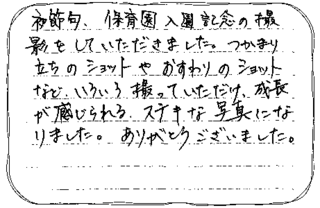 初節句、保育園入園記念の撮
影をしていただきました。つかまり
立ちのショットやおすわりのショット
など、いろいろ撮っていただけ、成長
が感じられる、ステキな写真にな
りました。ありがとうございました。